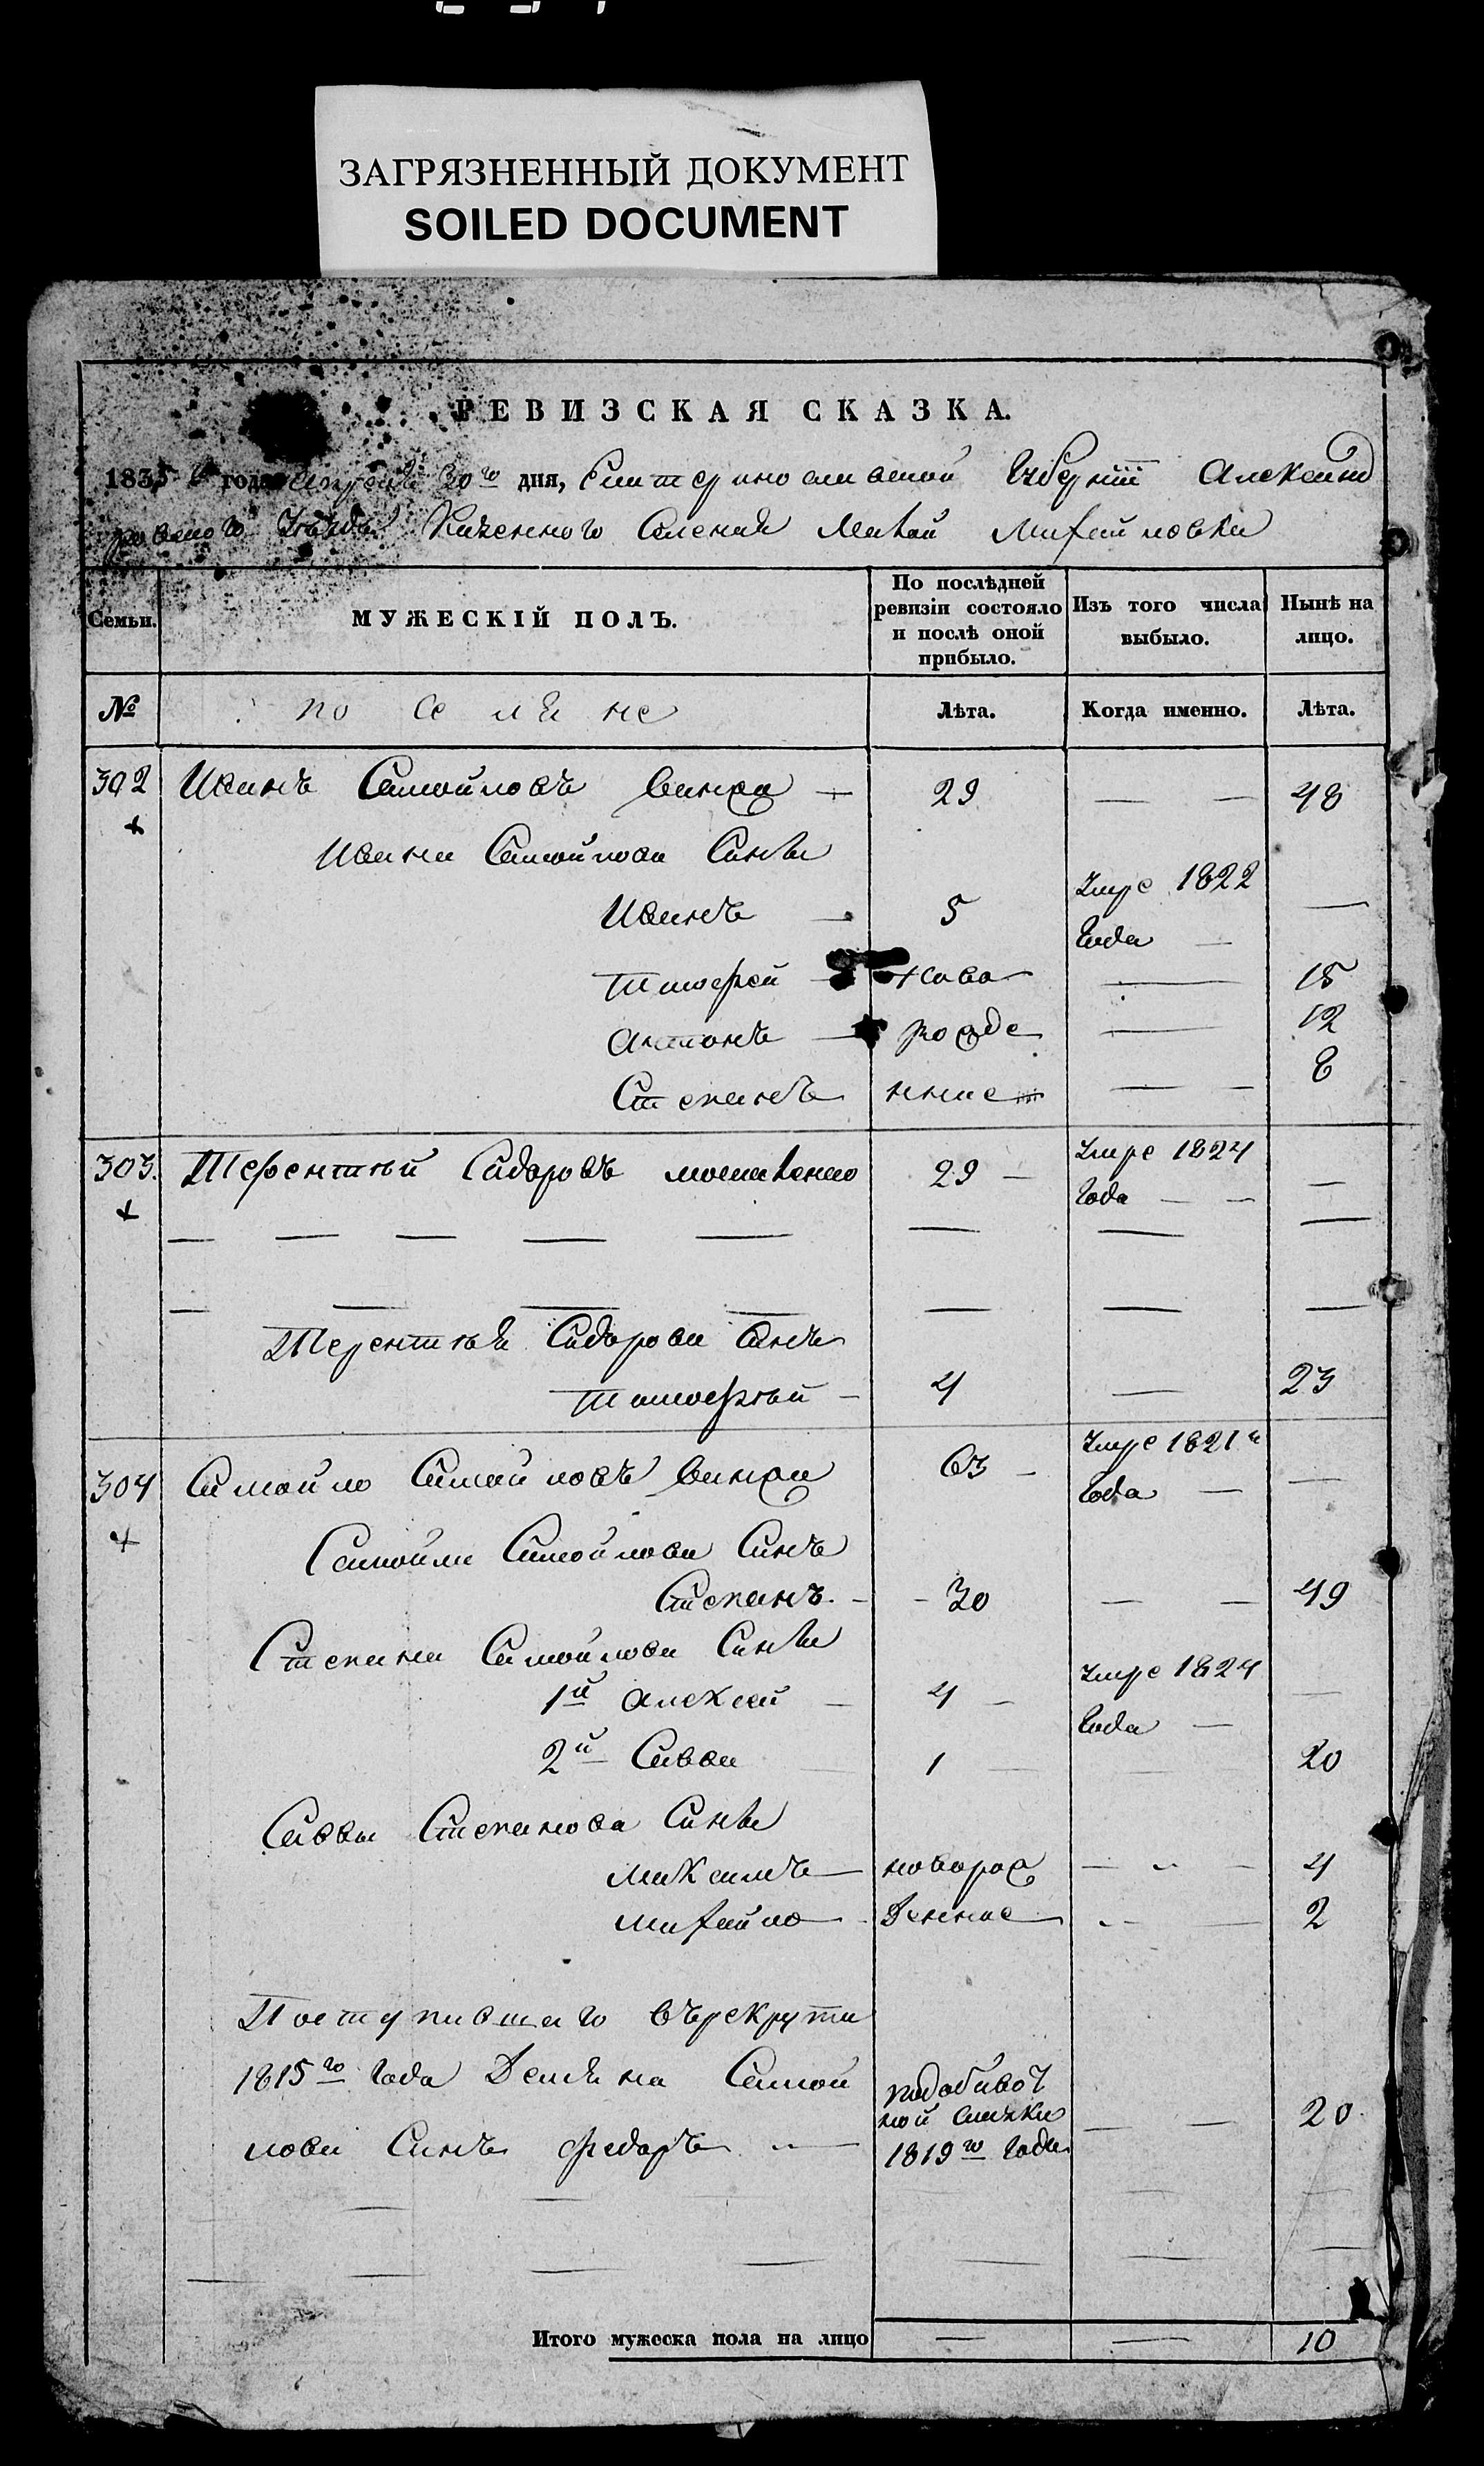 ЗАГРЯЗНЕННЫЙ ДОКУМЕНТ
SOILED DOCUMENT
РЕВИЗСКАЯ СКАЗКА.
1835 го года апреля 30 го дня, Екатеринославской Губернiи Александ
ровского Уезда Казенного Селения Малой Михайловки
Семьи.
МУЖЕСКIЙ ПОЛЪ.
По послѣдней ревизiи состояло и послѣ оной прибыло.
Изъ того числа выбыло.
Нынѣ на лицо.
№
поселяне
Лѣта.
Когда именно.
Лѣта.
302 Иванъ Самойловъ Ванжа — 29 — — 48
Ивана Самойлова Сины
Иванъ — 5 Умре 1822 Года — —
Тимофей — ново — 15
Антонъ — рожде — 12
Степанъ нние — — 8
303. Терентий Сидоровъ 29 — Умре 1824 Года — — —
Терентия Сидорова Синъ
Тимофий — 4 — 23
304 Самойло Самойловъ Ванжа 63 — Умре 1821 Года — —
Самойла Самойлова Синъ
Степанъ. — 30 — — 49
Степана Самойлова Сины
1й Алексей — 4 — Умре 1824 Года — —
2й Савва 1 20
Саввы Степанова Сины
Максимъ — новорож — — 4
Михайло — денние — — 2
Поступившего въ рекрути
1815 го Года Демяна Самой
лова Синъ Федоръ —
подобивоч
ной скаски
1819 го Года
— — 20
Итого мужеска пола на лицо — — 10